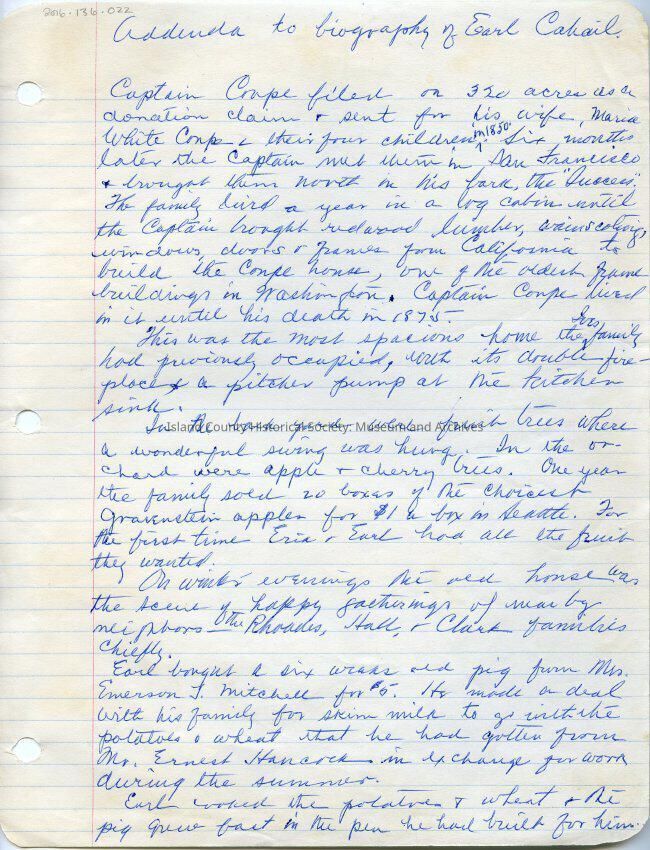 2016.136.022
Addenda to biography of Earl Cahail.
Captain Coupe filed on 320 acres as a
donation claim & sent for his wife, Maria
White Coupe & their four children in 1850. Six months
later the Captain met them in San Francisco
& brought them north in his bark, the "Success".
The family lived a year in a log cabin until
the Captain brought redwood lumber, wainscoting,
windows, doors & frames from California to
build the Coupe house, one of the oldest frame
buildings in Washington. Captain Coupe lived
in it until his death in 1875.
This was the most spacious home the family
had previously occupied, with its double fire-
place & a pitcher pump at the kitchen
sink.
In the back yard were fruit trees where
Island County Historical Society: Museum and Archives
a wonderful swing was hung. In the or-
chard were apple & cherry trees. One year
the family sold 20 boxes of the choicest
Gravenstein apples for $1 a box in Seattle. For
the first time Eria & Earl had all the fruit
they wanted.
On winter evenings the old house was
the scene of happy gatherings of nearby
neighbors - the Rhoades, Hall, & Clark families
chiefly.
Earl bought a six weeks old pig from Mrs.
Emerson T. Mitchell for $5. He made a deal
with his family for skim milk to go with the
potatoes & wheat that he had gotten from
Mr. Ernest Hancock in exchange for work
during the summer.
Earl cooked the potatoes & wheat & the
pig grew fast in the pen he had built for him.